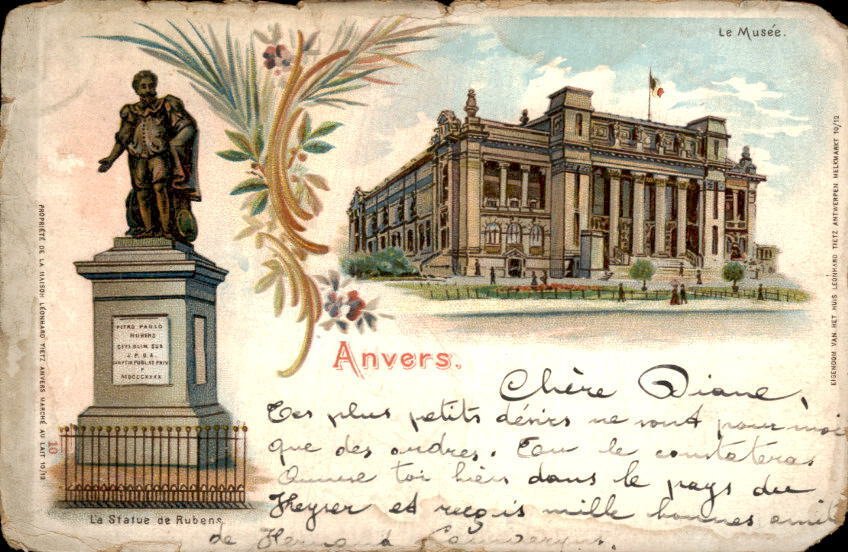 Le Musée.
PROPRIÉTÉ DE LA MAISON LÉONHARD TIETZ ANVERS MARCHÉ AU LAIT 10/12
EIGENDOM VAN HET HUIS LÉONHARD TIETZ ANTWERPEN MELKMARKT 10/12
PETRO PAULO
RUBENS
CIVI OLIM SUO
S.P.Q.A.
MDCCCXXXX
10
La Statue de Rubens.
Anvers.
Chère Diane,
Tes plus petits désirs ne sont pour moi
que des ordres. Tu le constateras
Amuse toi bien dans le pays du
Keyser et reçois mille bonnes amit
de